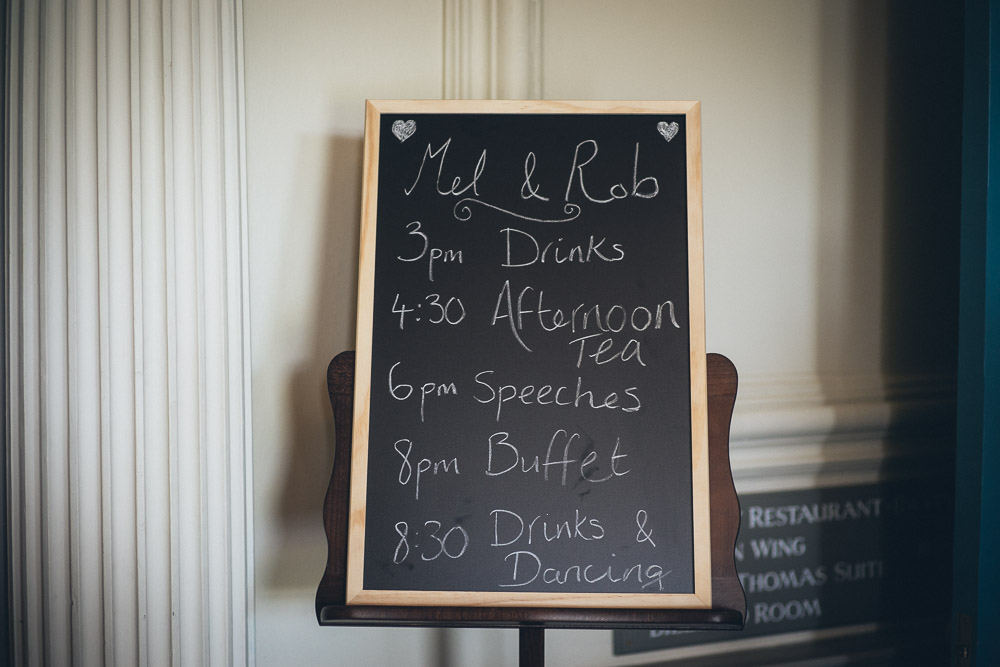 Mel & Rob
3pm Drinks
4:30 Afternoon
Tea
6pm Speeches
8pm Buffet
8:30 Drinks &
Dancing
RESTAURANT
WING
THOMAS SUITE
ROOM